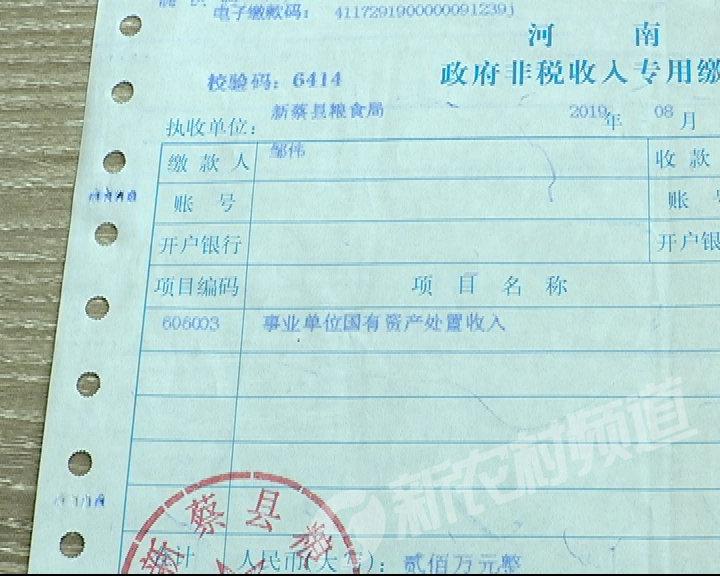 电子缴款码： 41172919000000091239j
河 南
政府非税收入专用缴
校验码：6414
执收单位：新蔡县粮食局 2019年 08月
缴款人 邹伟 收款
账号 账
开户银行 开户银
项目编码 项目名称
606003 事业单位国有资产处置收入
新农村频道
新蔡县粮
合计 人民币（大写）：贰佰万元整